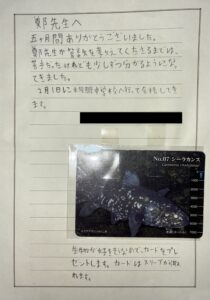 鄭先生へ
五ヶ月間ありがとうございました。
鄭先生が算数を教えてくださるまでは、
苦手だったけれども少しずつ分かるようになっ
てきました。
2月1日に
中学校へ行って合格してき
ます。
No.07 シーラカンス
生物が好きなので、カードをプレ
ゼントします。カードはスリーブから取
れます。